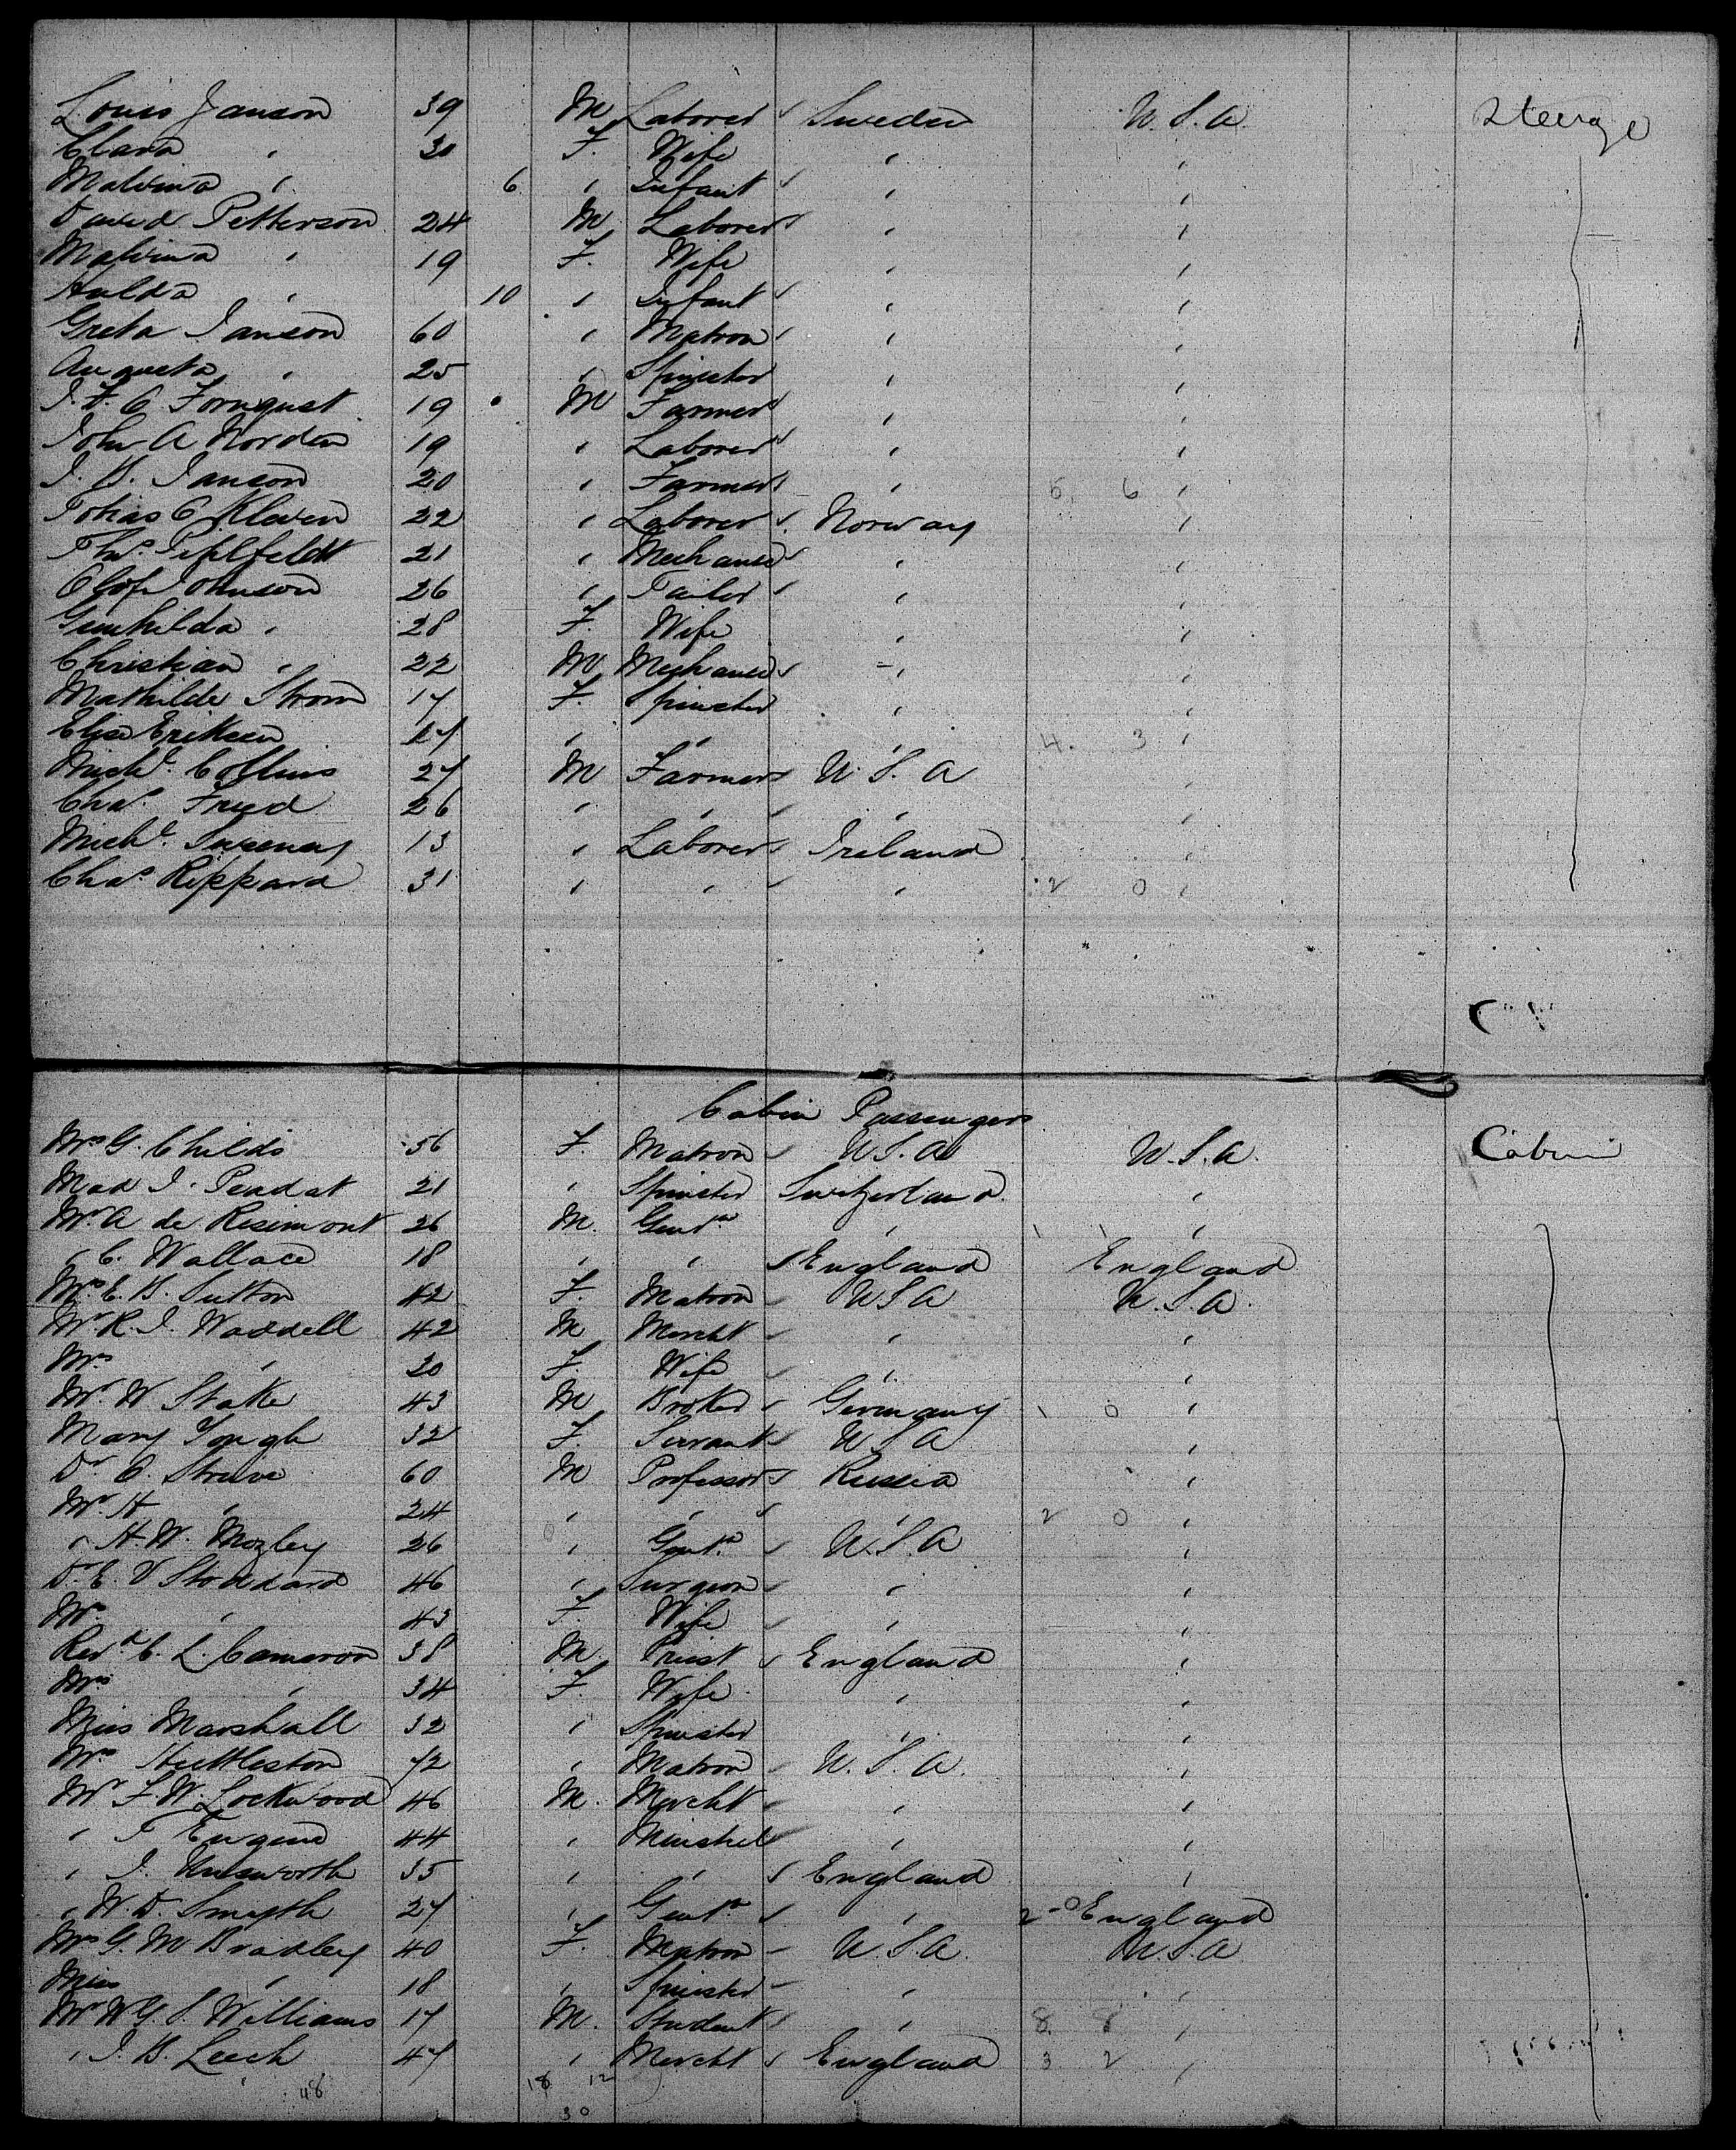 Louis Janson 39 M Laborer Sweden U.S.A. Steerage
Clara " 30 F. Wife " "
Malvina " 6 " Infant " "
David Petterson 24 M Laborer " "
Malvina " 19 F. Wife " "
Hulda " 10 " Infant " "
Greta Janson 60 " Matron " "
Augusta " 25 " Spinster " "
J. F. C. Fornquist 19 M Farmer " "
John A Norden 19 " Laborer " "
J. B. Janson 20 " Farmer " 5 6 "
Tobias O Kleven 22 " Laborer Norway "
Thos. 21 " Mechanic " "
Olof Johnson 26 " Tailor " "
Gunhilda " 28 F. Wife " "
Christian " 22 M Mechanic " "
Mathilde Strom 17 F. Spinster " "
Elise Eriksen 17 " " " 4. 3 "
Michl. Collins 27 M Farmer U.S.A "
Chas. Freed 26 " " " "
Michl. Sweeney 13 " Laborer Ireland "
Chas. Rippard 31 " " " 2 0 "
Cabin Passengers
Mrs G. Childs 56 F. Matron U.S.A U.S.A. Cabin
Mad J. 21 " Spinster Switzerland "
Mr. A de Resimont 26 M. Gentn " 1 1 "
" C. Wallace 18 " " England England
Mrs E. B. Sutton 42 F. Matron U.S.A U.S.A.
Mr. R. J. Waddell 42 M Mercht " "
Mrs " 30 F. Wife " "
Mr. W Stake 43 M Broker Germany 1 0 "
Mary Yough 32 F. Servant U.S.A "
Dr O. Struve 60 M Professor Russia "
Mr. H " 24 " " " 2 0 "
" H. W. Mozley 26 " Gentn U.S.A "
Dr. E. V Stoddard 46 " Surgeon " "
Mrs " 43 F. Wife " "
Revd. C. L. Cameron 38 M. Priest England "
Mrs " 34 F. Wife " "
Miss Marshall 32 " Spinster " "
Mrs Huttleston 72 " Matron U.S.A. "
Mr F. W. Lockwood 46 M. Mercht " "
" T Eugene 44 " Minstrel " "
" J. Unsworth 35 " " England "
" W. D. Smyth 27 " Gentn " 2-0 England
Mrs G. M Bradley 40 F. Matron U.S.A. U.S.A
Miss " 18 " Spinster " "
Mr W G. S. Williams 17 M. Student " 8 8 "
" J. B. Leech 47 " Mercht England 3 2 "
48 18 12
30